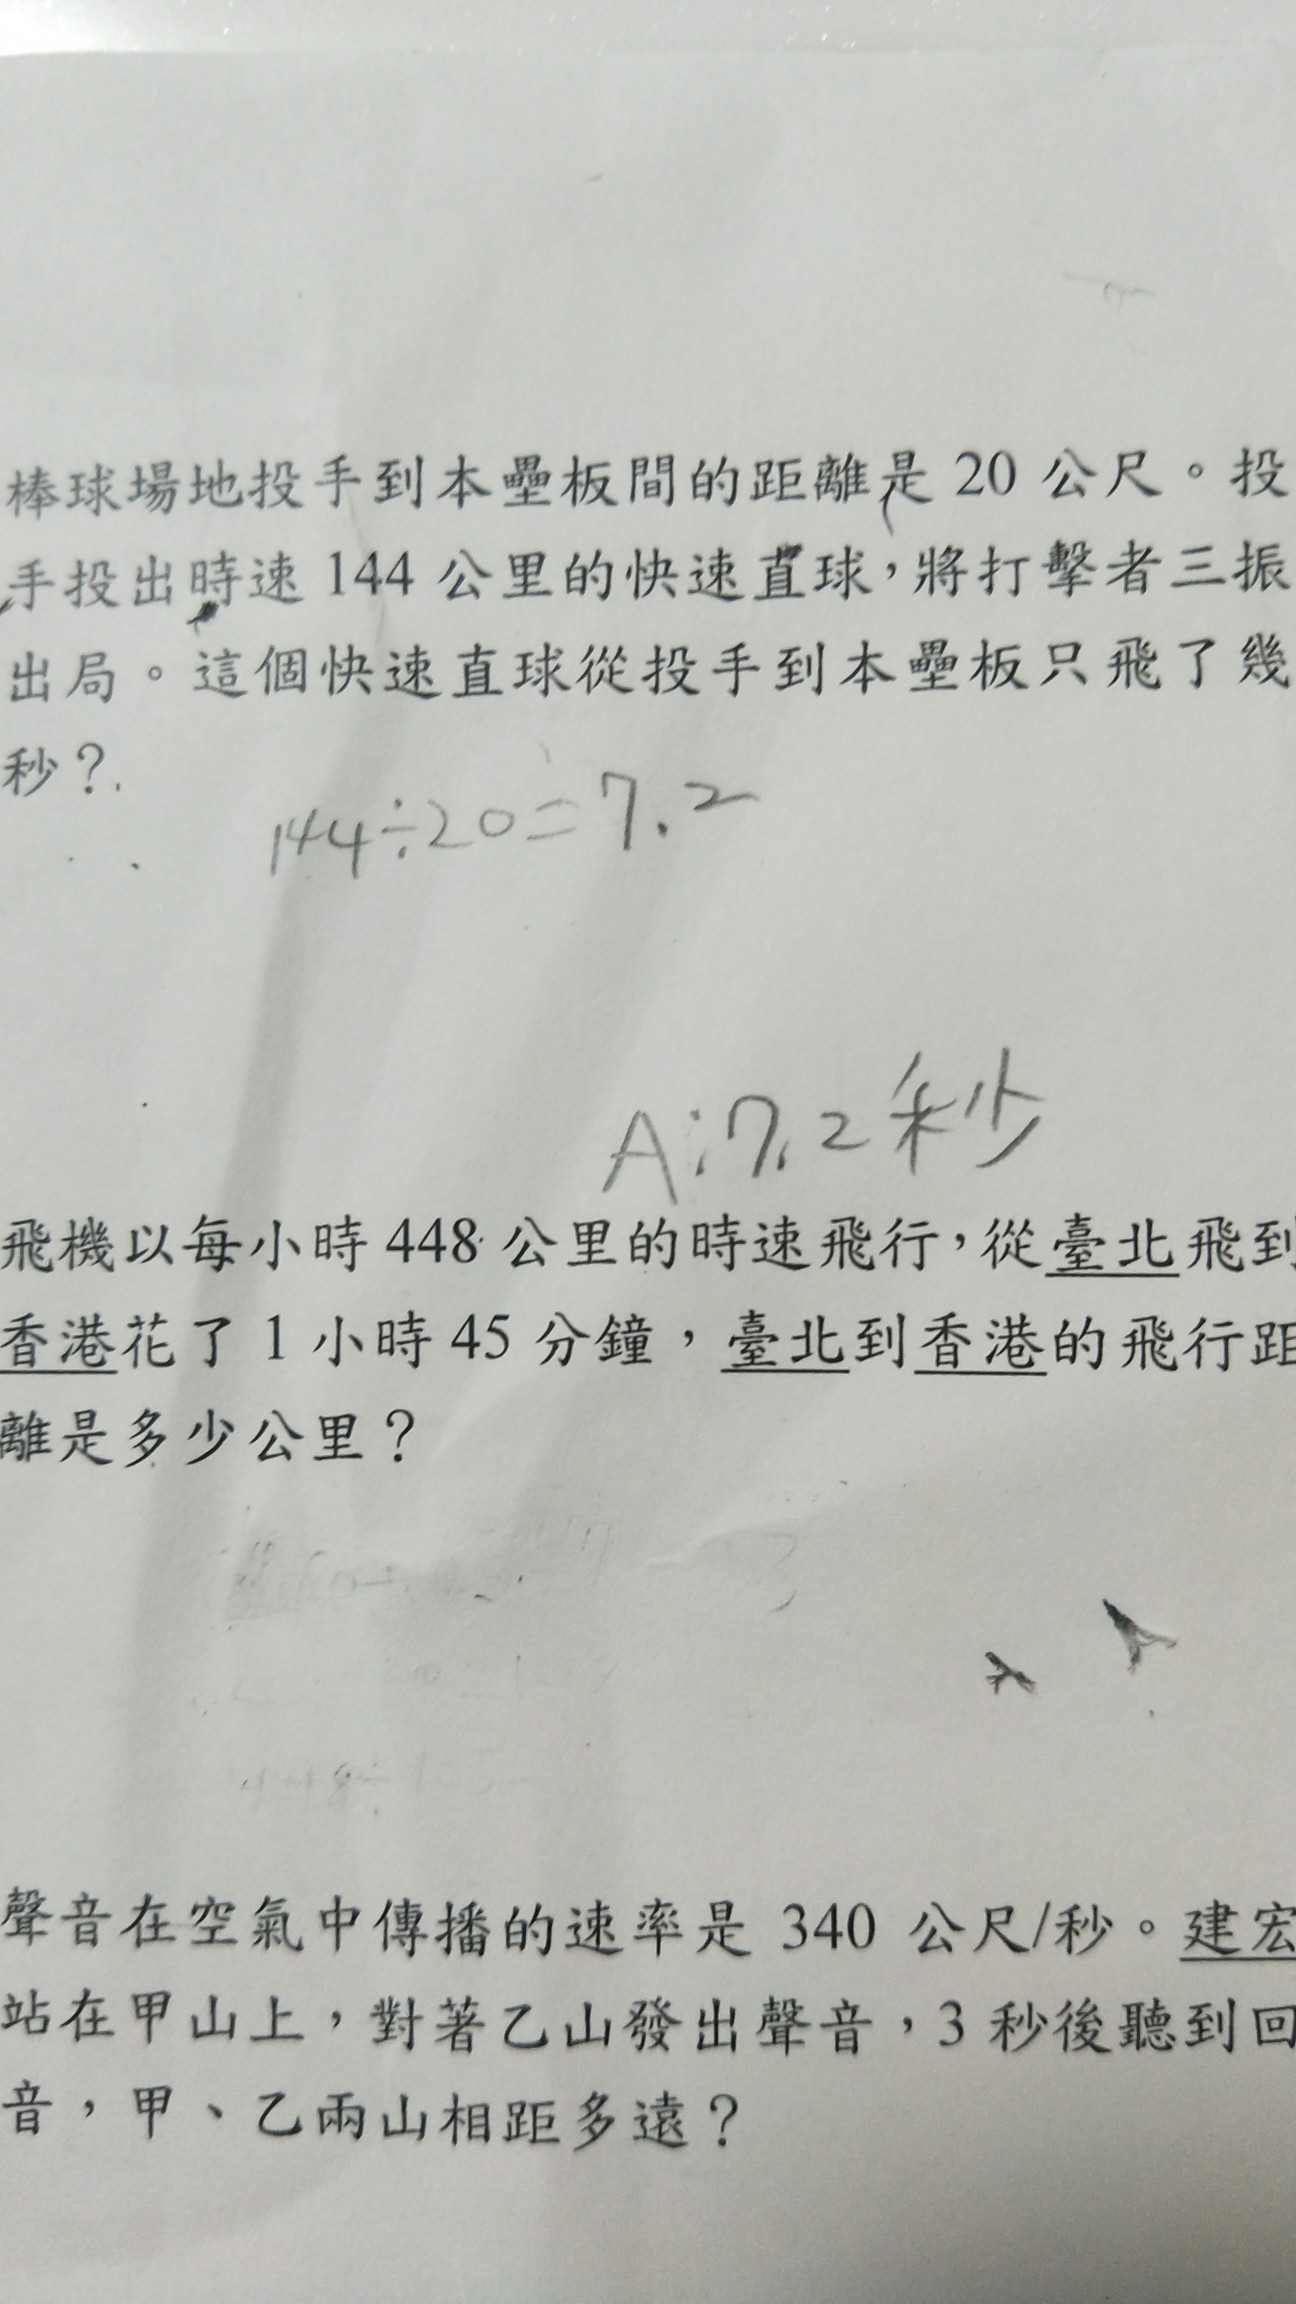 棒球場地投手到本壘板間的距離是 20 公尺。投
手投出時速 144 公里的快速直球,將打擊者三振
出局。這個快速直球從投手到本壘板只飛了幾
秒?
144÷20=7.2
A:7.2秒
飛機以每小時 448 公里的時速飛行,從臺北飛到
香港花了 1 小時 45 分鐘,臺北到香港的飛行距
離是多少公里?
聲音在空氣中傳播的速率是 340 公尺/秒。建宏
站在甲山上,對著乙山發出聲音,3 秒後聽到回
音,甲、乙兩山相距多遠?